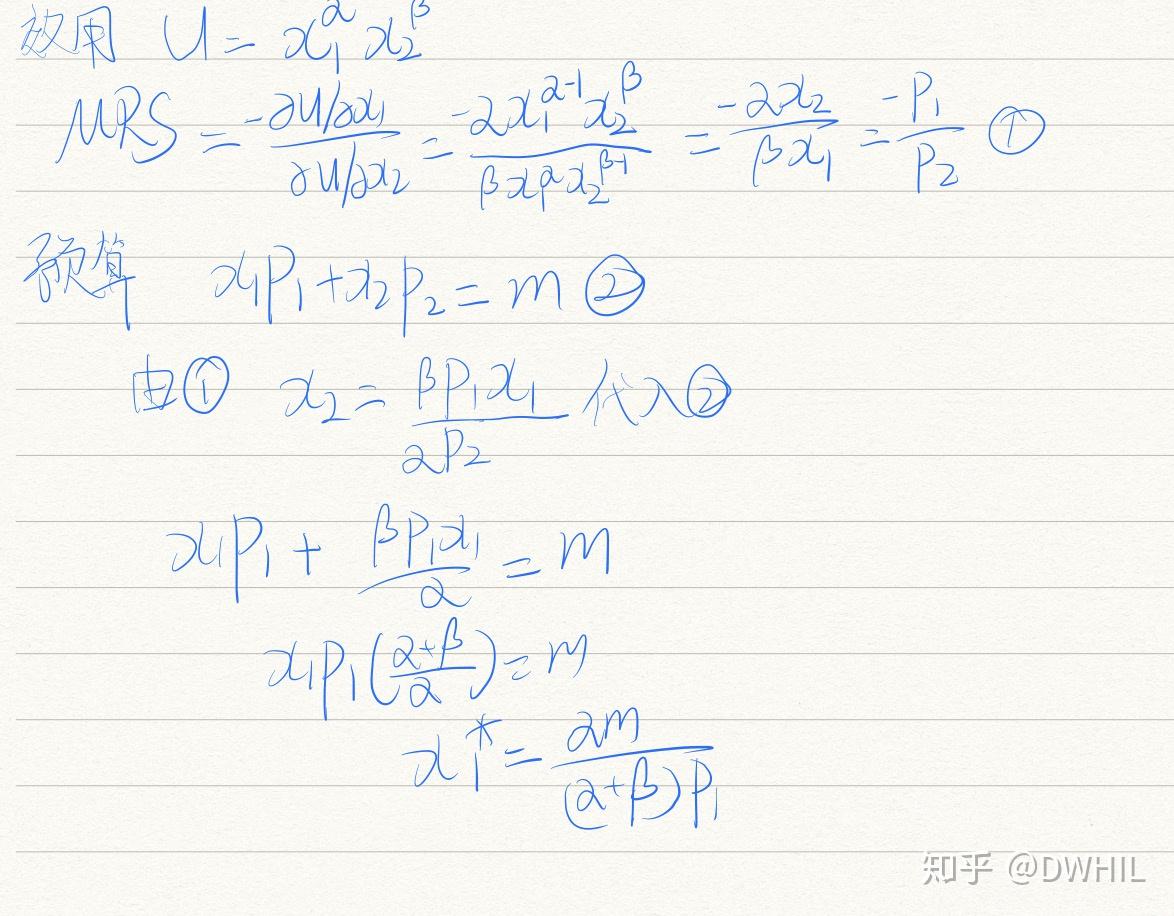 效用 U = x₁^α x₂^β
MRS = -∂U/∂x₁ / ∂U/∂x₂ = -αx₁^(α-1) x₂^β / βx₁^α x₂^(β-1) = -αx₂ / βx₁ = -P₁ / P₂ ①
预算 x₁P₁ + x₂P₂ = m ②
由① x₂ = βP₁x₁ / αP₂ 代入②
x₁P₁ + βP₁x₁ / α = m
x₁P₁(α+β / α) = m
x₁* = αm / (α+β)P₁
知乎 @DWHIL